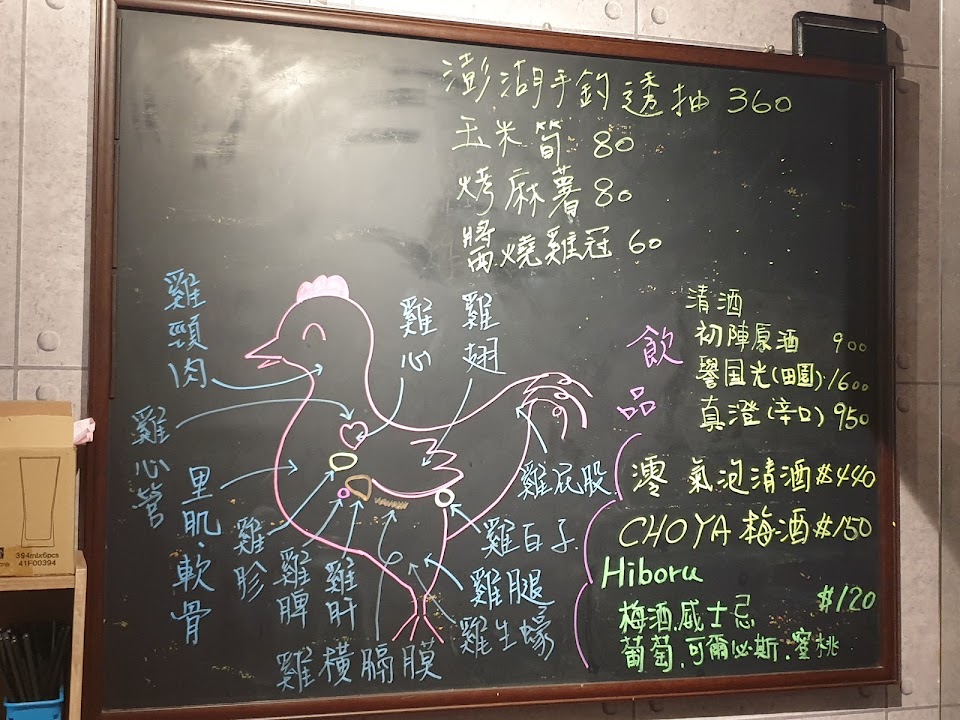 澎湖手釣透抽 360
玉米筍 80
烤麻薯 80
醬燒雞冠 60
雞頸肉
雞心
雞翅
雞心管
里肌.軟骨
雞胗
雞脾
雞肝
雞橫膈膜
雞屁股
雞白子
雞腿
雞生蠔
飲品
清酒
初陣原酒 900
譽国光(田園).1600
真澄(辛口) 950
澪 氣泡清酒 $440
CHOYA 梅酒 $150
Hiboru
$120
梅酒.威士忌
葡萄.可爾必斯.蜜桃
394mlx6pcs
41F00394